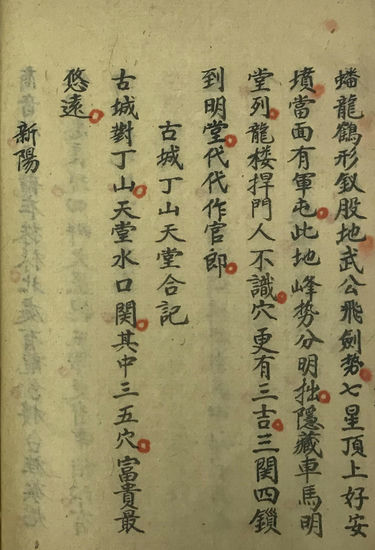 蟠龍鶴形釵股地武公飛劍勢七星頂上好安
墳當面有軍屯此地峰勢分明拙隱藏車馬明
堂列龍楼捍門人不識穴更有三吉三関四鎖
到明堂代代作官郎
古城丁山天堂合記
古城對丁山天堂水口関其中三五穴富貴最
悠遠
新陽